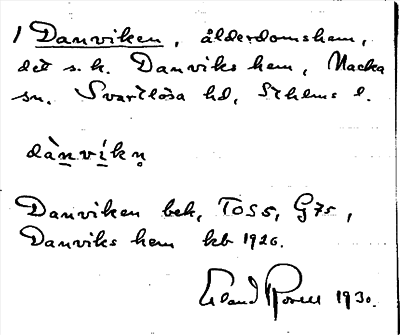 1 Danviken, ålderdomshem,
det s. k. Danviks hem, Nacka
sn. Svartlösa hd, Sthlms l.
dànvíkn̥
Danviken bek, TOSS, G75,
Danviks hem kb 1926.
Erland 1930.